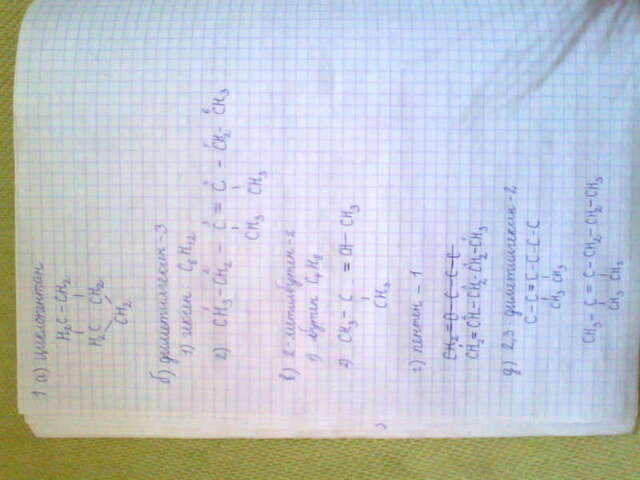 1 а) Циклопентан
H₂C - CH₂
H₂C CH₂
CH₂
б) диметилгексен - 3
1) гексен - C₆H₁₂
2) CH₃ - CH₂ - C = C - CH₂ - CH₃
CH₃ CH₃
в) 2 - метилбутен - 2
1) бутен C₄H₈
2) CH₃ - C = CH - CH₃
CH₃
г) пентен - 1
CH₂ = CH - CH₂ - CH₂ - CH₃
д) 2,3 - диметилгексен - 2
C - C = C - C - C - C
CH₃ CH₃
CH₃ - C = C - CH₂ - CH₂ - CH₃
CH₃ CH₃